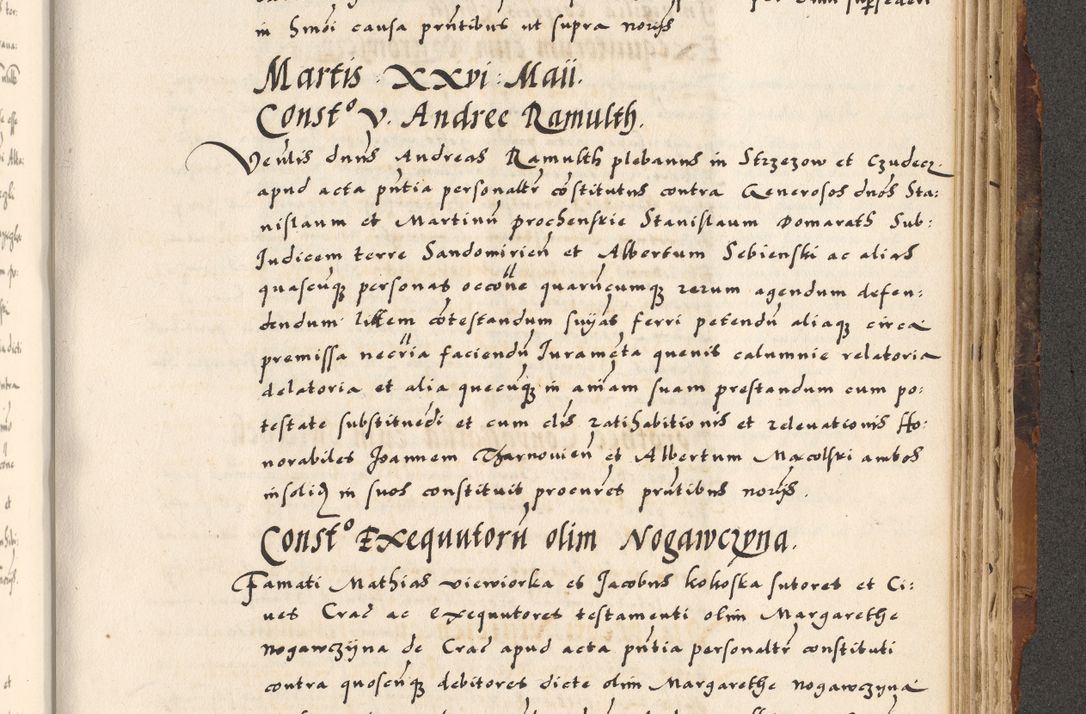 in Smoi causa pñtibus ut supra noriis
Martis : XXVI : Maii.
Constº v. Andree Ramulth.
Veñlis dnũs Andreas Ramulth plebanus in Strzezow et Czudecz
apud acta pñtia personaltr cõstitutus contra Generosos dnõs Sta:
nislaum et Martinũ prochenskie Stanislaum Domarath Sub:
Iudicem terre Sandomirieñ et Albertum Sebienski ac alias
quascũqz personas occõne quarũcumqz rerum agendum defen:
dendum littem cõtestandum suijas ferri petendũ aliaqz circa
premissa neccria faciendũ Iuramẽta quevis calumnie relatoria
delatoria et alia quecũqz in aniam suam prestandum cum po:
testate substituẽdi et cum clis ratihabitionis et relevationis Ho:
norabiles Joannem Tharnovieñ et Albertum Macolski ambos
insolid in suos constituit procures pñtibus noriis.
Constº Exequutorũ olim Nogawczyna.
Famati Mathias viewiorka et Jacobus kokoska sutores et Ci:
ves Crac ac Exequutores testamenti olim Margarethe
Nogawczijna de Crac apud acta pñtia personaltr constituti
contra quoscũqz debitores dicte olim Margarethe Nogawczyna